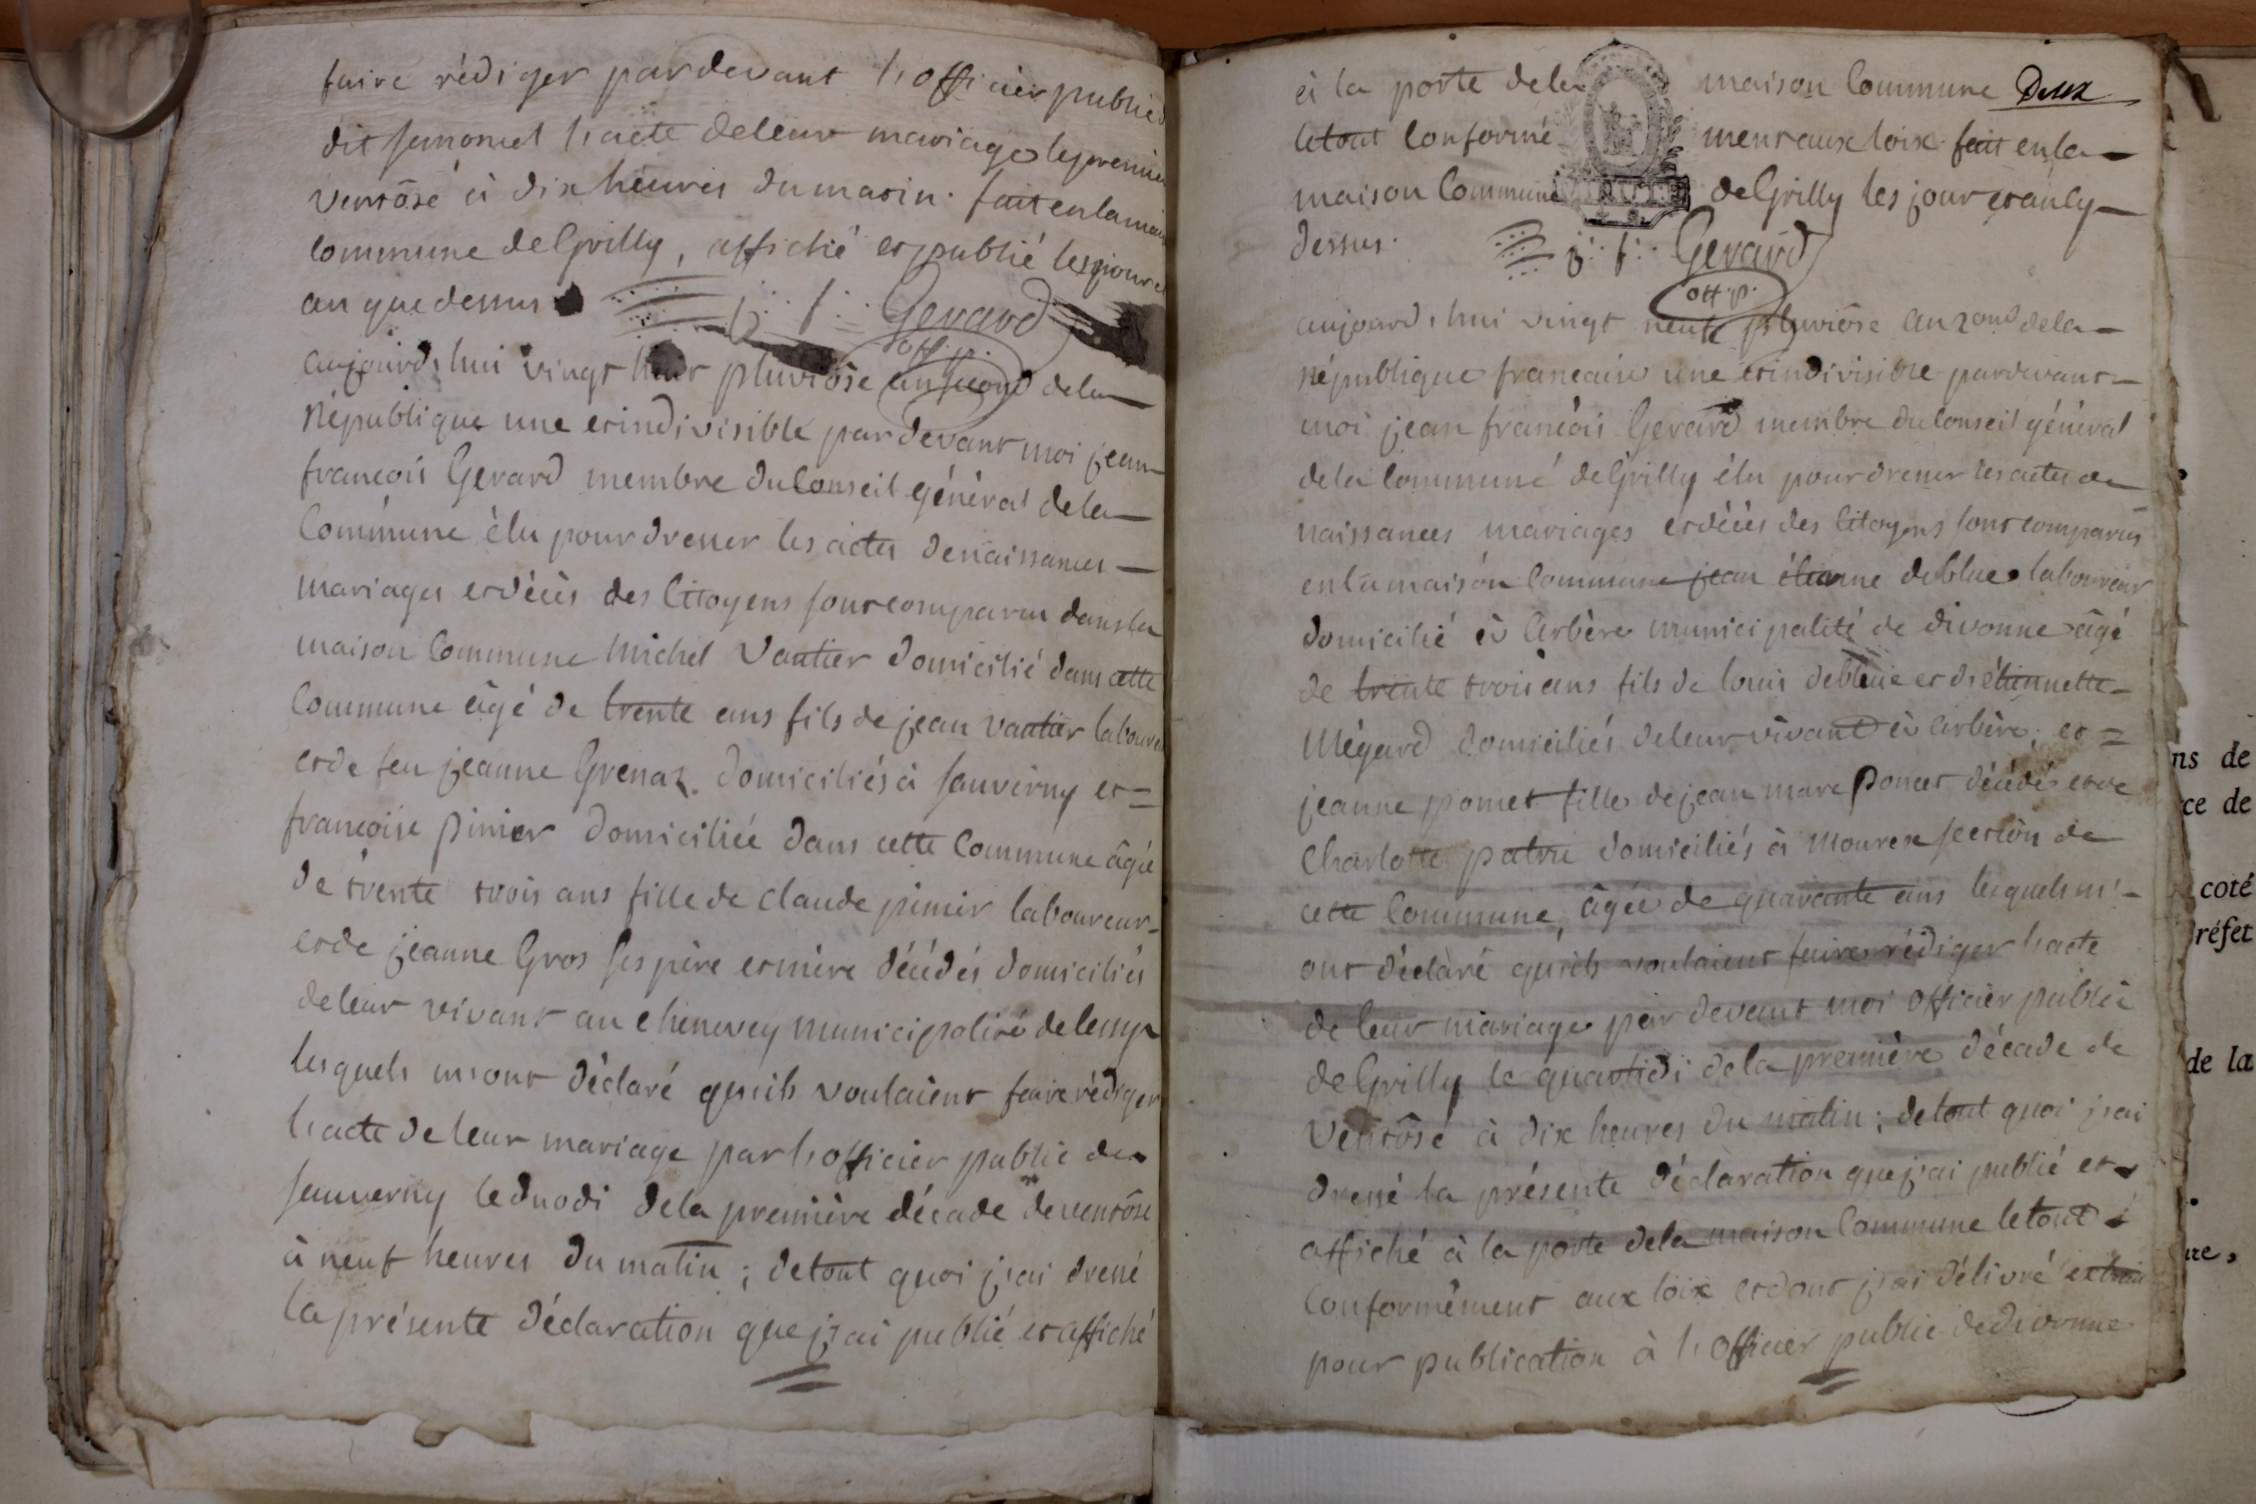 faire rédiger pardevant l'officier public
dit fernomel l'acte de leur mariage le premier
ventôse à dix heures du matin. fait en la maison
commune de Grilly, affiché et publié les jour et
an que dessus
j. f. Gerard
off. p.
aujourd'hui vingt huit pluviôse an second de la
République une et indivisible par devant moi jean
francois Gerard membre du Conseil général de la
Commune élu pour dresser les actes de naissances
mariages et décès des Citoyens sont comparu dans la
maison Commune Michel Vautier domicilié dans cette
Commune âgé de trente ans fils de jean Vautier laboureur
et de feu jeanne Grenaz domiciliés à Sauverny et =
francoise pinier domiciliée dans cette Commune âgée
de trente trois ans fille de claude pinier laboureur
et de jeanne Gros ses père et mère décédés domiciliés
de leur vivant au chenevey municipalité de lessy
lesquels m'ont déclaré qu'ils voulaient faire rédiger
l'acte de leur mariage par l'officier public de
Sauverny le duodi de la première décade de ventôse
à neuf heures du matin ; de tout quoi j'ai dressé
la présente déclaration que j'ai publié et affiché
à la porte de la maison Commune Deux
le tout conformément aux loix fait en la
maison Commune de Grilly les jour et an cy
dessus.
j. f. Gerard
off. p.
aujourd'hui vingt neuf pluviôse an 2ond de la
République francaise une et indivisible pardevant
moi jean francois Gerard membre du Conseil général
de la Commune de Grilly élu pour dresser les actes de
naissances mariages et décès des Citoyens sont comparus
en la maison Commune jean étienne deblue laboureur
domicilié à Arbère municipalité de divonne âgé
de trente trois ans fils de louis deblue et d'étiennette
Mégard domiciliés de leur vivant à Arbère ; et =
jeanne ponet fille de jean marc ponet décédé et de
Charlotte patru domiciliés à Mourex section de
cette Commune, âgée de quarante ans lesquels m'
ont déclaré qu'ils voulaient faire rédiger l'acte
de leur mariage par devant moi officier public
de Grilly le quartidi de la première décade de
Ventôse à dix heures du matin ; de tout quoi j'ai
dressé la présente déclaration que j'ai publié et
affiché à la porte de la maison Commune le tout
Conformément aux loix et dont j'ai délivré extrait
pour publication à l'officier public de divonne
ns de
ce de
coté
réfet
de la
re,